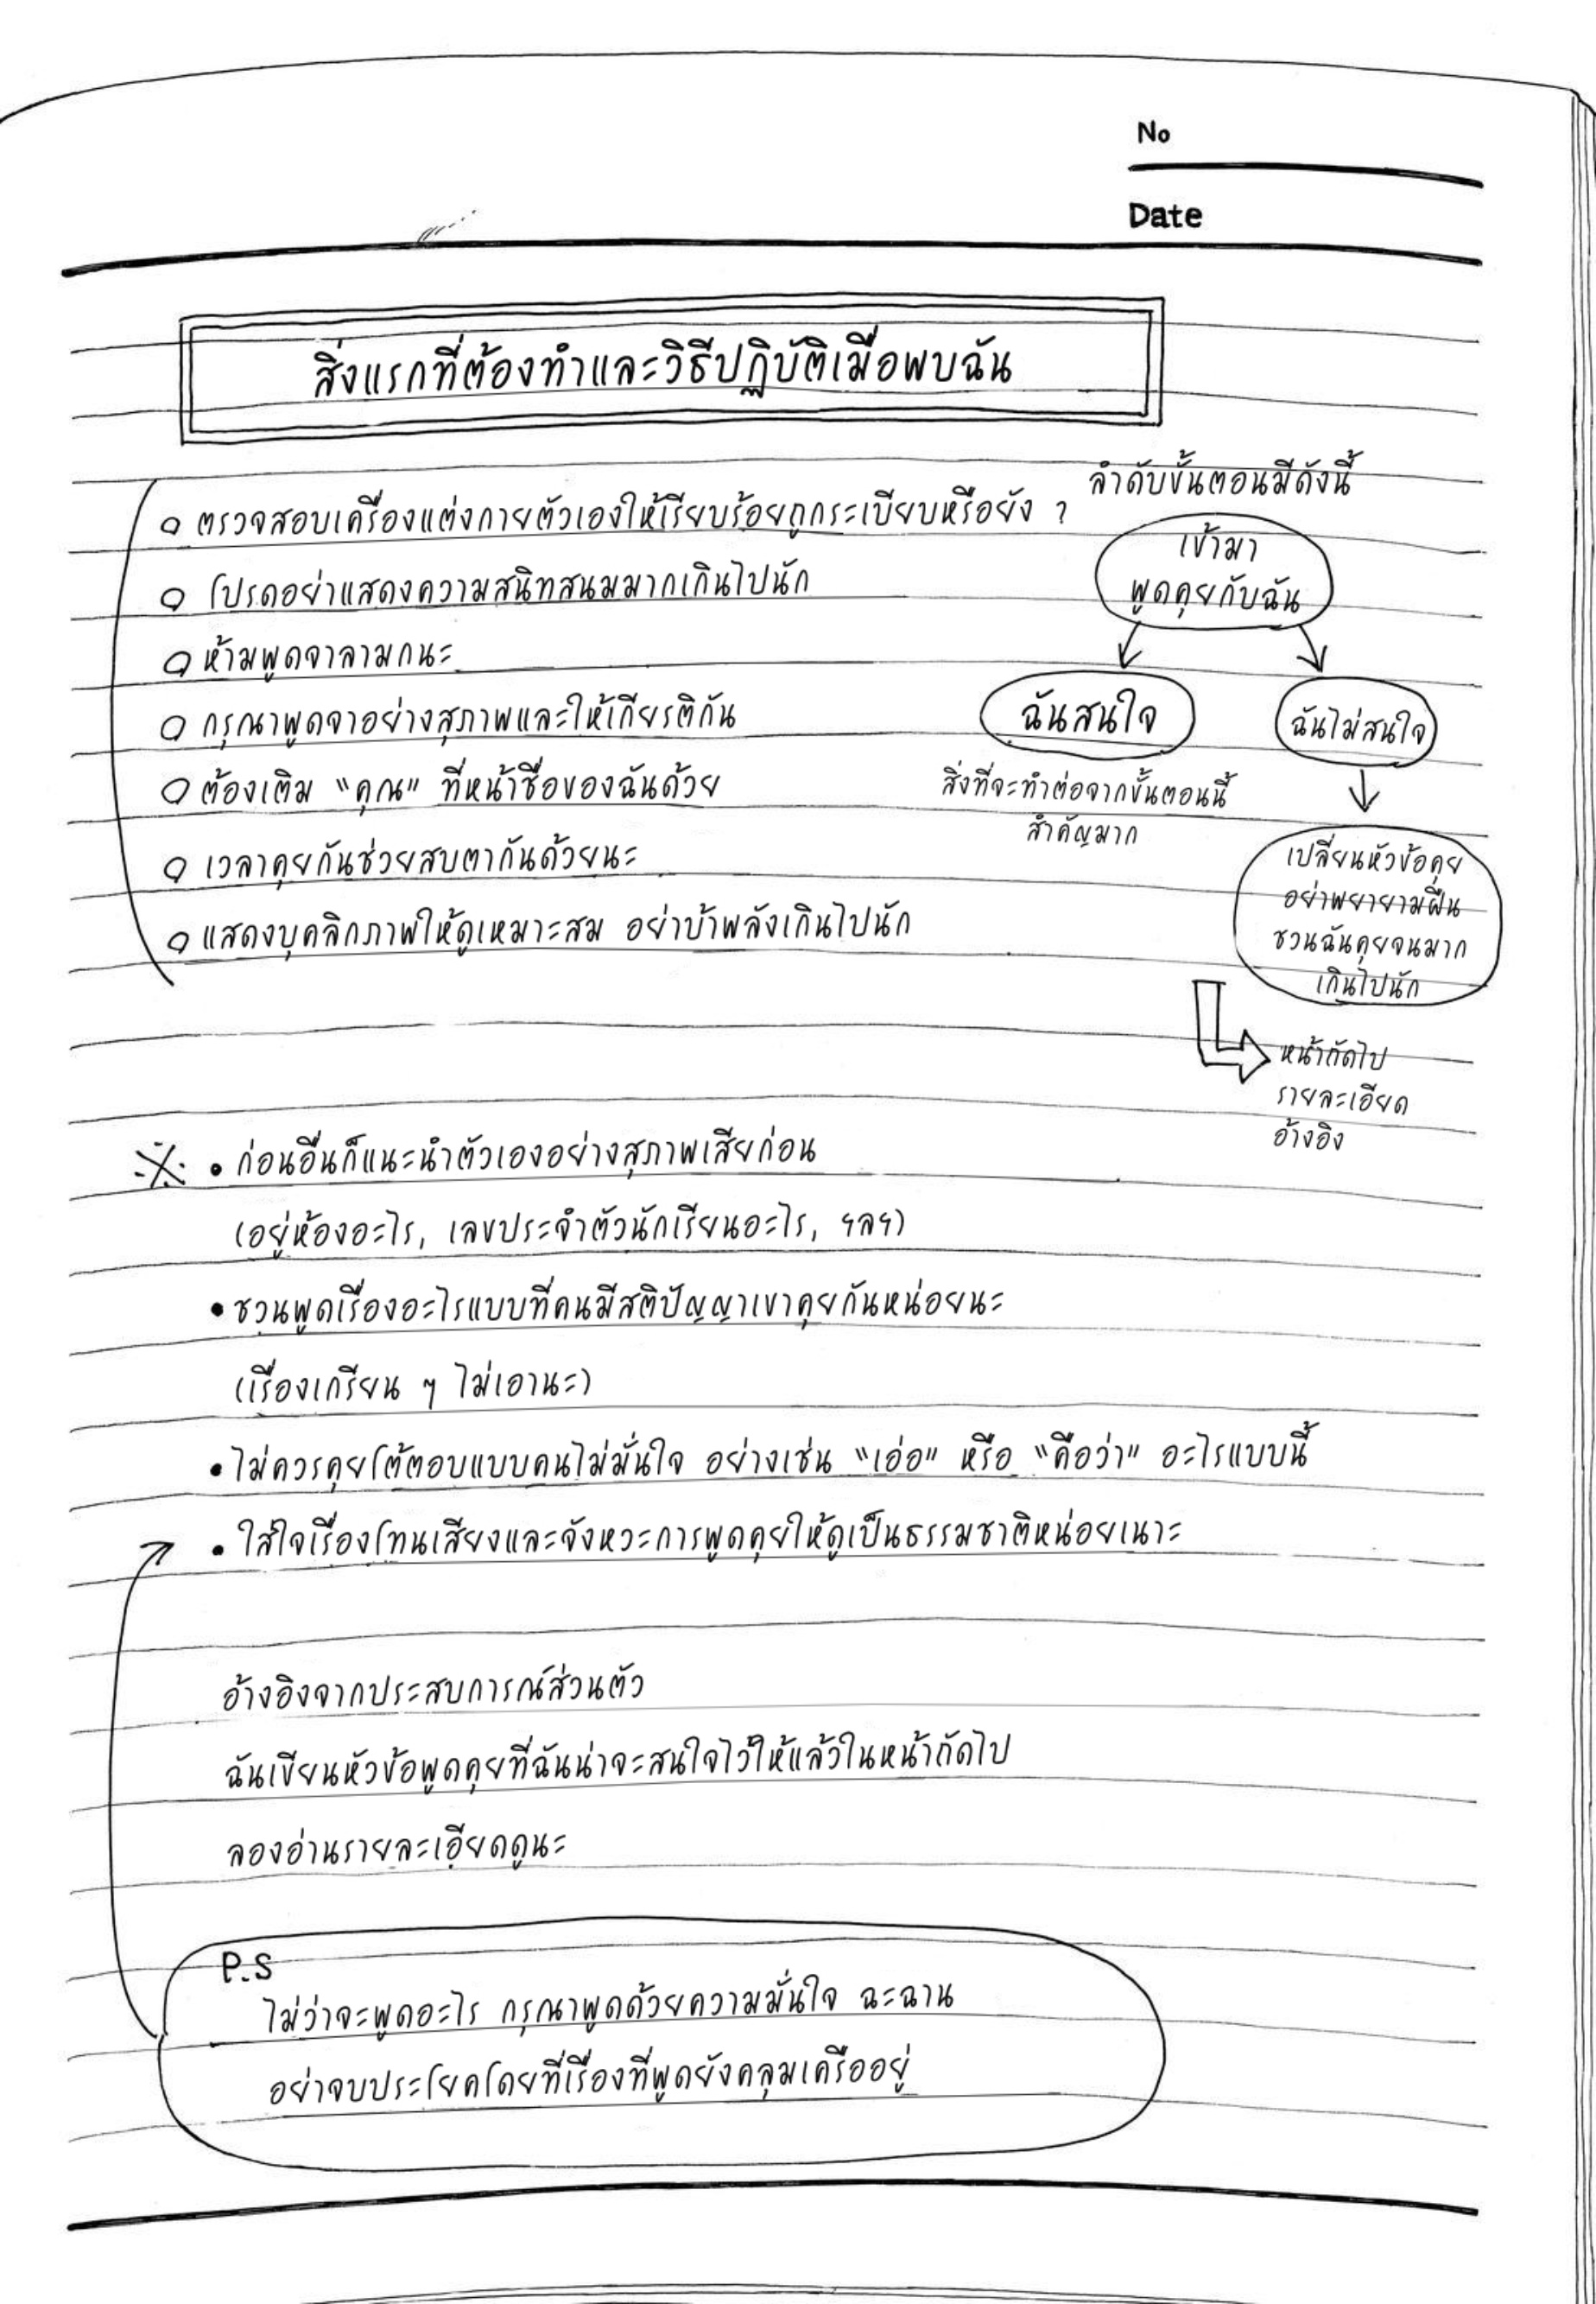 No
Date
สิ่งแรกที่ต้องทำและวิธีปฏิบัติเมื่อพบฉัน
○ ตรวจสอบเครื่องแต่งกายตัวเองให้เรียบร้อยถูกระเบียบหรือยัง ?
○ โปรดอย่าแสดงความสนิทสนมมากเกินไปนัก
○ ห้ามพูดจาลามกนะ
○ กรุณาพูดจาอย่างสุภาพและให้เกียรติกัน
○ ต้องเติม "คุณ" ที่หน้าชื่อของฉันด้วย
○ เวลาคุยกันช่วยสบตากันด้วยนะ
○ แสดงบุคลิกภาพให้ดูเหมาะสม อย่าบ้าพลังเกินไปนัก
ลำดับขั้นตอนมีดังนี้
เข้ามา
พูดคุยกับฉัน
ฉันสนใจ
สิ่งที่จะทำต่อจากขั้นตอนนี้
สำคัญมาก
ฉันไม่สนใจ
เปลี่ยนหัวข้อคุย
อย่าพยายามฝืน
ชวนฉันคุยจนมาก
เกินไปนัก
หน้าถัดไป
รายละเอียด
อ้างอิง
※ • ก่อนอื่นก็แนะนำตัวเองอย่างสุภาพเสียก่อน
(อยู่ห้องอะไร, เลขประจำตัวนักเรียนอะไร, ฯลฯ)
• ชวนพูดเรื่องอะไรแบบที่คนมีสติปัญญาเขาคุยกันหน่อยนะ
(เรื่องเกรียน ๆ ไม่เอานะ)
• ไม่ควรคุยโต้ตอบแบบคนไม่มั่นใจ อย่างเช่น "เอ่อ" หรือ "คือว่า" อะไรแบบนี้
• ใส่ใจเรื่องโทนเสียงและจังหวะการพูดคุยให้ดูเป็นธรรมชาติหน่อยเนาะ
อ้างอิงจากประสบการณ์ส่วนตัว
ฉันเขียนหัวข้อพูดคุยที่ฉันน่าจะสนใจไว้ให้แล้วในหน้าถัดไป
ลองอ่านรายละเอียดดูนะ
P.S
ไม่ว่าจะพูดอะไร กรุณาพูดด้วยความมั่นใจ ฉะฉาน
อย่าจบประโยคโดยที่เรื่องที่พูดยังคลุมเครืออยู่